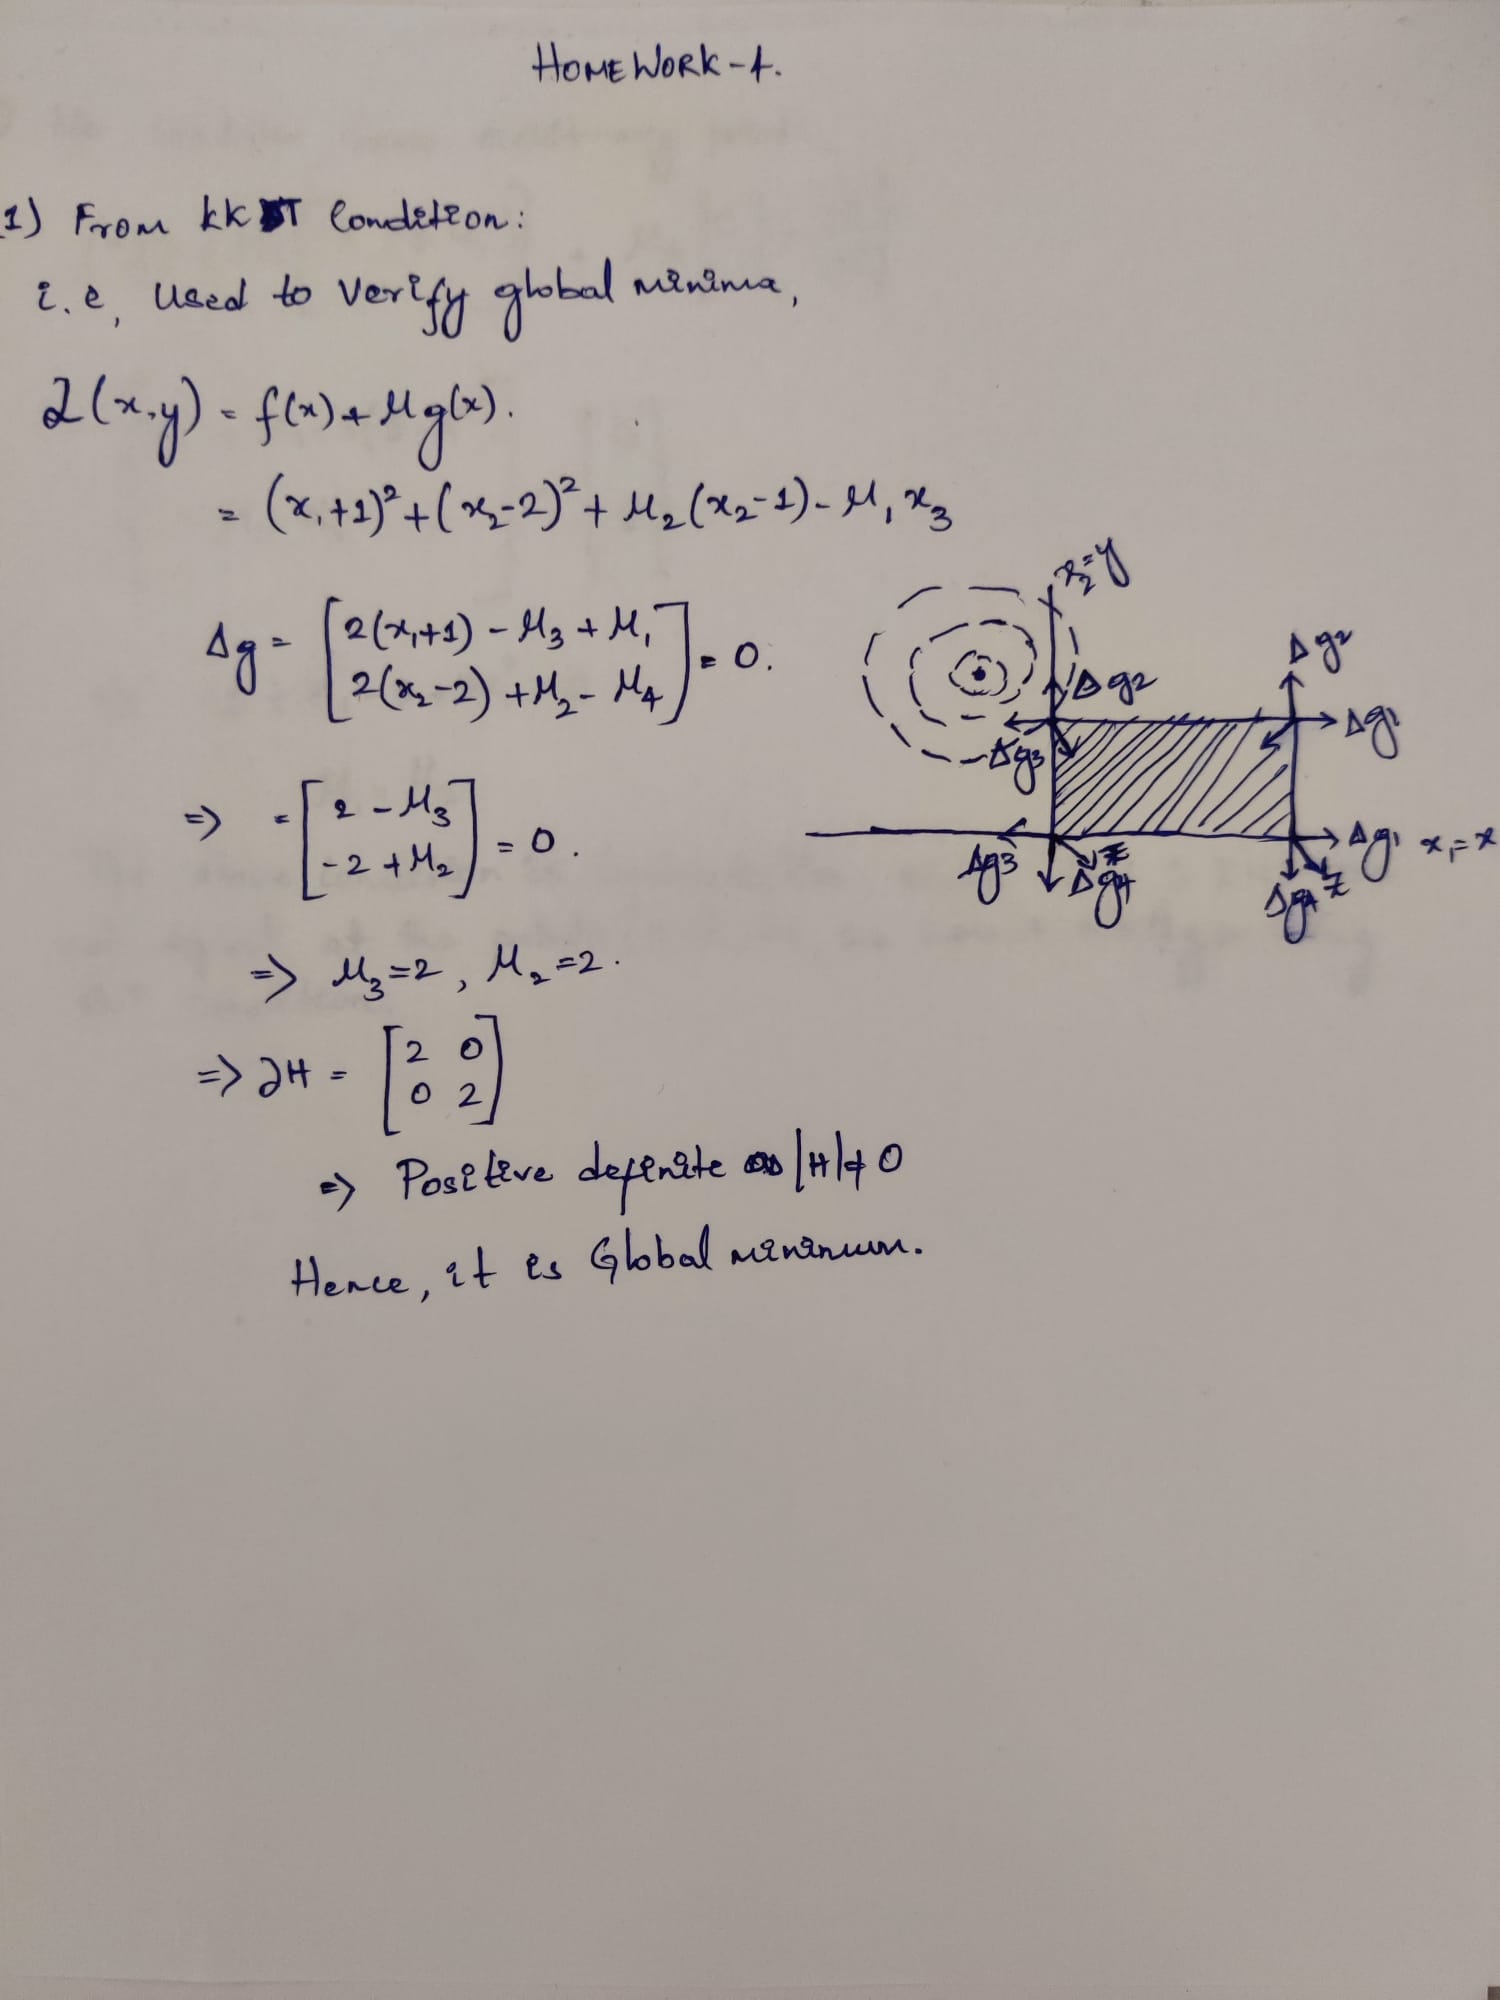 HOMEWORK-4.
1) From KKT Condition:
i.e, Used to Verify global minima,
L(x,y) = f(x) + μ g(x).
= (x₁+1)² + (x₂-2)² + μ₂(x₂-1) - μ₁ x₃
Δg = [2(x₁+1) - μ₃ + μ₁
2(x₂-2) + μ₂ - μ₄] = 0.
=> = [2 - μ₃
-2 + μ₂] = 0.
=> μ₃=2, μ₂=2.
=> ∂H = [2 0
0 2]
=> Positive definite as |H|≠0
Hence, it is Global minimum.
x₂=y
Δg2
Δg2
Δg3
Δg1
Δg3
Δg4
Δg1
x₁=x
Δg4